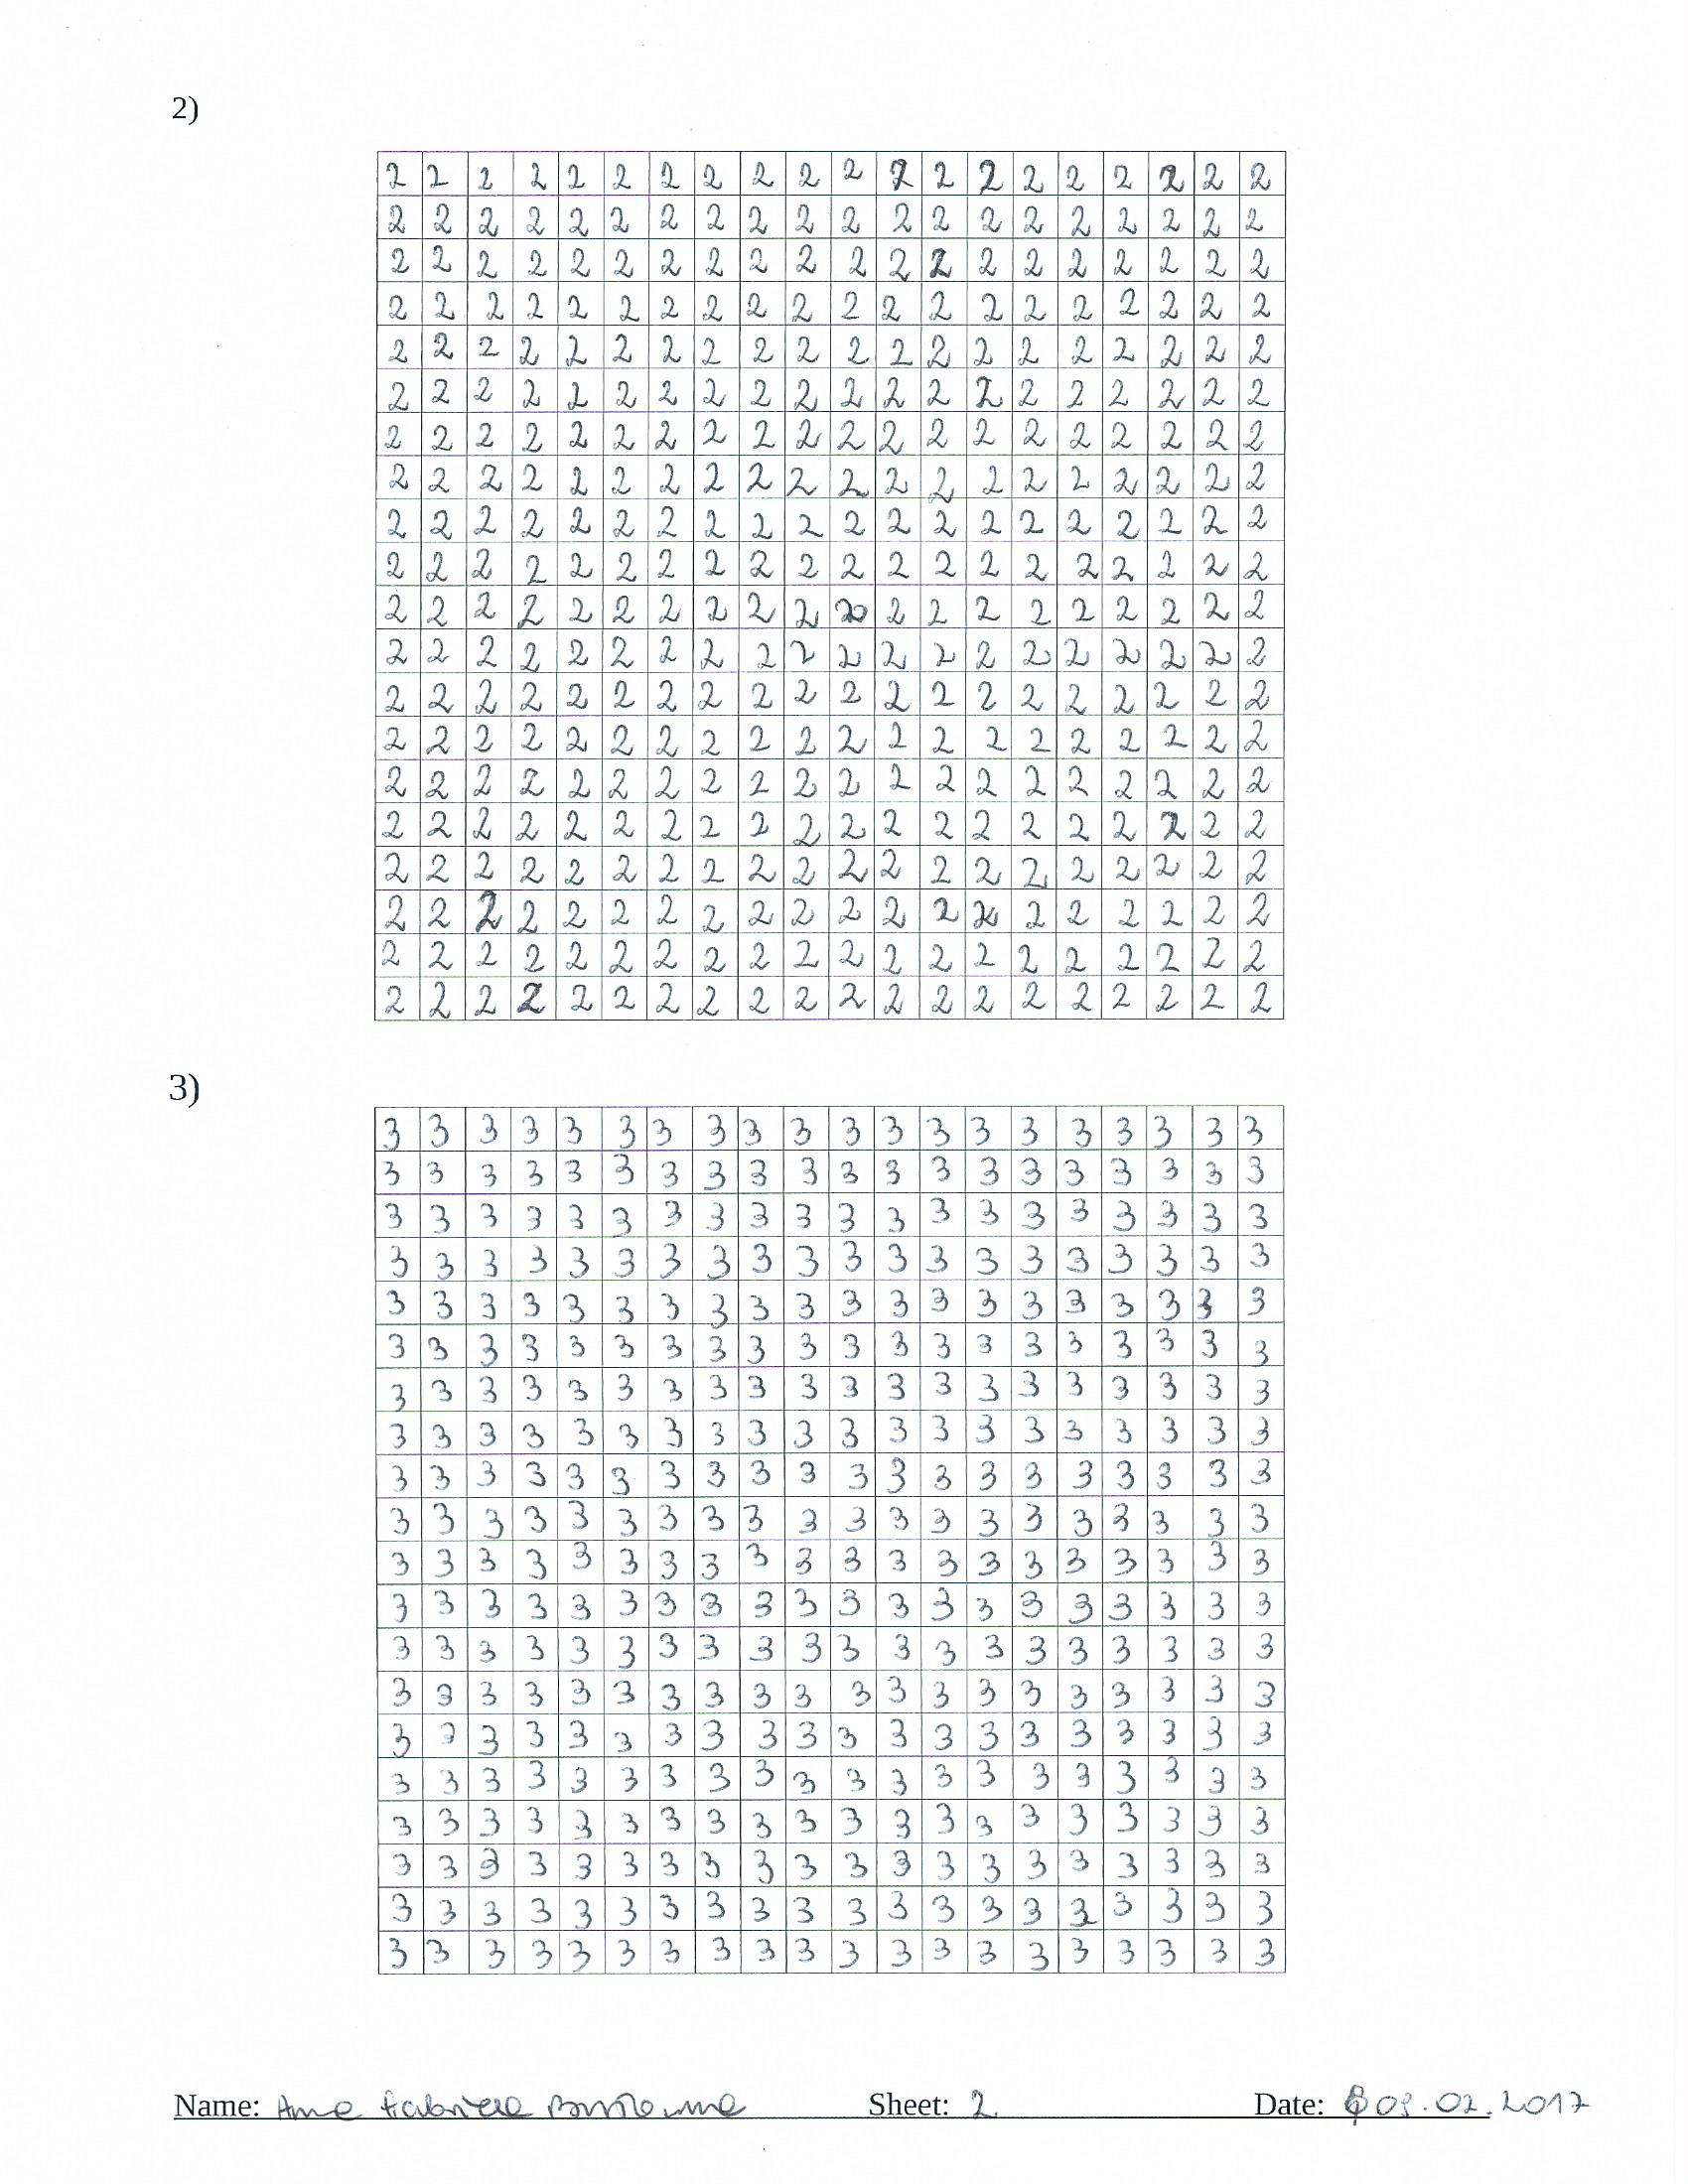 2)
2 2 2 2 2 2 2 2 2 2 2 2 2 2 2 2 2 2 2 2
2 2 2 2 2 2 2 2 2 2 2 2 2 2 2 2 2 2 2 2
2 2 2 2 2 2 2 2 2 2 2 2 2 2 2 2 2 2 2 2
2 2 2 2 2 2 2 2 2 2 2 2 2 2 2 2 2 2 2 2
2 2 2 2 2 2 2 2 2 2 2 2 2 2 2 2 2 2 2 2
2 2 2 2 2 2 2 2 2 2 2 2 2 2 2 2 2 2 2 2
2 2 2 2 2 2 2 2 2 2 2 2 2 2 2 2 2 2 2 2
2 2 2 2 2 2 2 2 2 2 2 2 2 2 2 2 2 2 2 2
2 2 2 2 2 2 2 2 2 2 2 2 2 2 2 2 2 2 2 2
2 2 2 2 2 2 2 2 2 2 2 2 2 2 2 2 2 2 2 2
2 2 2 2 2 2 2 2 2 2 2 2 2 2 2 2 2 2 2 2
2 2 2 2 2 2 2 2 2 2 2 2 2 2 2 2 2 2 2 2
2 2 2 2 2 2 2 2 2 2 2 2 2 2 2 2 2 2 2 2
2 2 2 2 2 2 2 2 2 2 2 2 2 2 2 2 2 2 2 2
2 2 2 2 2 2 2 2 2 2 2 2 2 2 2 2 2 2 2 2
2 2 2 2 2 2 2 2 2 2 2 2 2 2 2 2 2 2 2 2
2 2 2 2 2 2 2 2 2 2 2 2 2 2 2 2 2 2 2 2
2 2 2 2 2 2 2 2 2 2 2 2 2 2 2 2 2 2 2 2
2 2 2 2 2 2 2 2 2 2 2 2 2 2 2 2 2 2 2 2
2 2 2 2 2 2 2 2 2 2 2 2 2 2 2 2 2 2 2 2
3)
3 3 3 3 3 3 3 3 3 3 3 3 3 3 3 3 3 3 3 3
3 3 3 3 3 3 3 3 3 3 3 3 3 3 3 3 3 3 3 3
3 3 3 3 3 3 3 3 3 3 3 3 3 3 3 3 3 3 3 3
3 3 3 3 3 3 3 3 3 3 3 3 3 3 3 3 3 3 3 3
3 3 3 3 3 3 3 3 3 3 3 3 3 3 3 3 3 3 3 3
3 3 3 3 3 3 3 3 3 3 3 3 3 3 3 3 3 3 3 3
3 3 3 3 3 3 3 3 3 3 3 3 3 3 3 3 3 3 3 3
3 3 3 3 3 3 3 3 3 3 3 3 3 3 3 3 3 3 3 3
3 3 3 3 3 3 3 3 3 3 3 3 3 3 3 3 3 3 3 3
3 3 3 3 3 3 3 3 3 3 3 3 3 3 3 3 3 3 3 3
3 3 3 3 3 3 3 3 3 3 3 3 3 3 3 3 3 3 3 3
3 3 3 3 3 3 3 3 3 3 3 3 3 3 3 3 3 3 3 3
3 3 3 3 3 3 3 3 3 3 3 3 3 3 3 3 3 3 3 3
3 3 3 3 3 3 3 3 3 3 3 3 3 3 3 3 3 3 3 3
3 3 3 3 3 3 3 3 3 3 3 3 3 3 3 3 3 3 3 3
3 3 3 3 3 3 3 3 3 3 3 3 3 3 3 3 3 3 3 3
3 3 3 3 3 3 3 3 3 3 3 3 3 3 3 3 3 3 3 3
3 3 3 3 3 3 3 3 3 3 3 3 3 3 3 3 3 3 3 3
3 3 3 3 3 3 3 3 3 3 3 3 3 3 3 3 3 3 3 3
3 3 3 3 3 3 3 3 3 3 3 3 3 3 3 3 3 3 3 3
Name: Sheet: 2 Date: